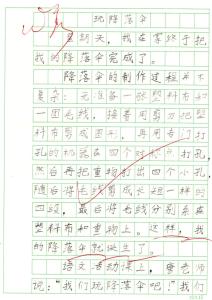 玩降落伞
星期天，我在家终于把
我的降落伞完成了。
降落伞的制作过程并不
复杂：先准备一张塑料布和
一团毛线，接着用剪刀把塑
料布剪成圆形，再用专门打
孔的机器在四个对打孔，
然后再把重物打出四个小孔，
随后将毛线剪成长短一样的
四段，最后将毛线分别系在
塑料布和重物上。这样，我
的降落伞就诞生了。
语文活动课上，唐老师
说：“我们玩降落伞吧！”我们